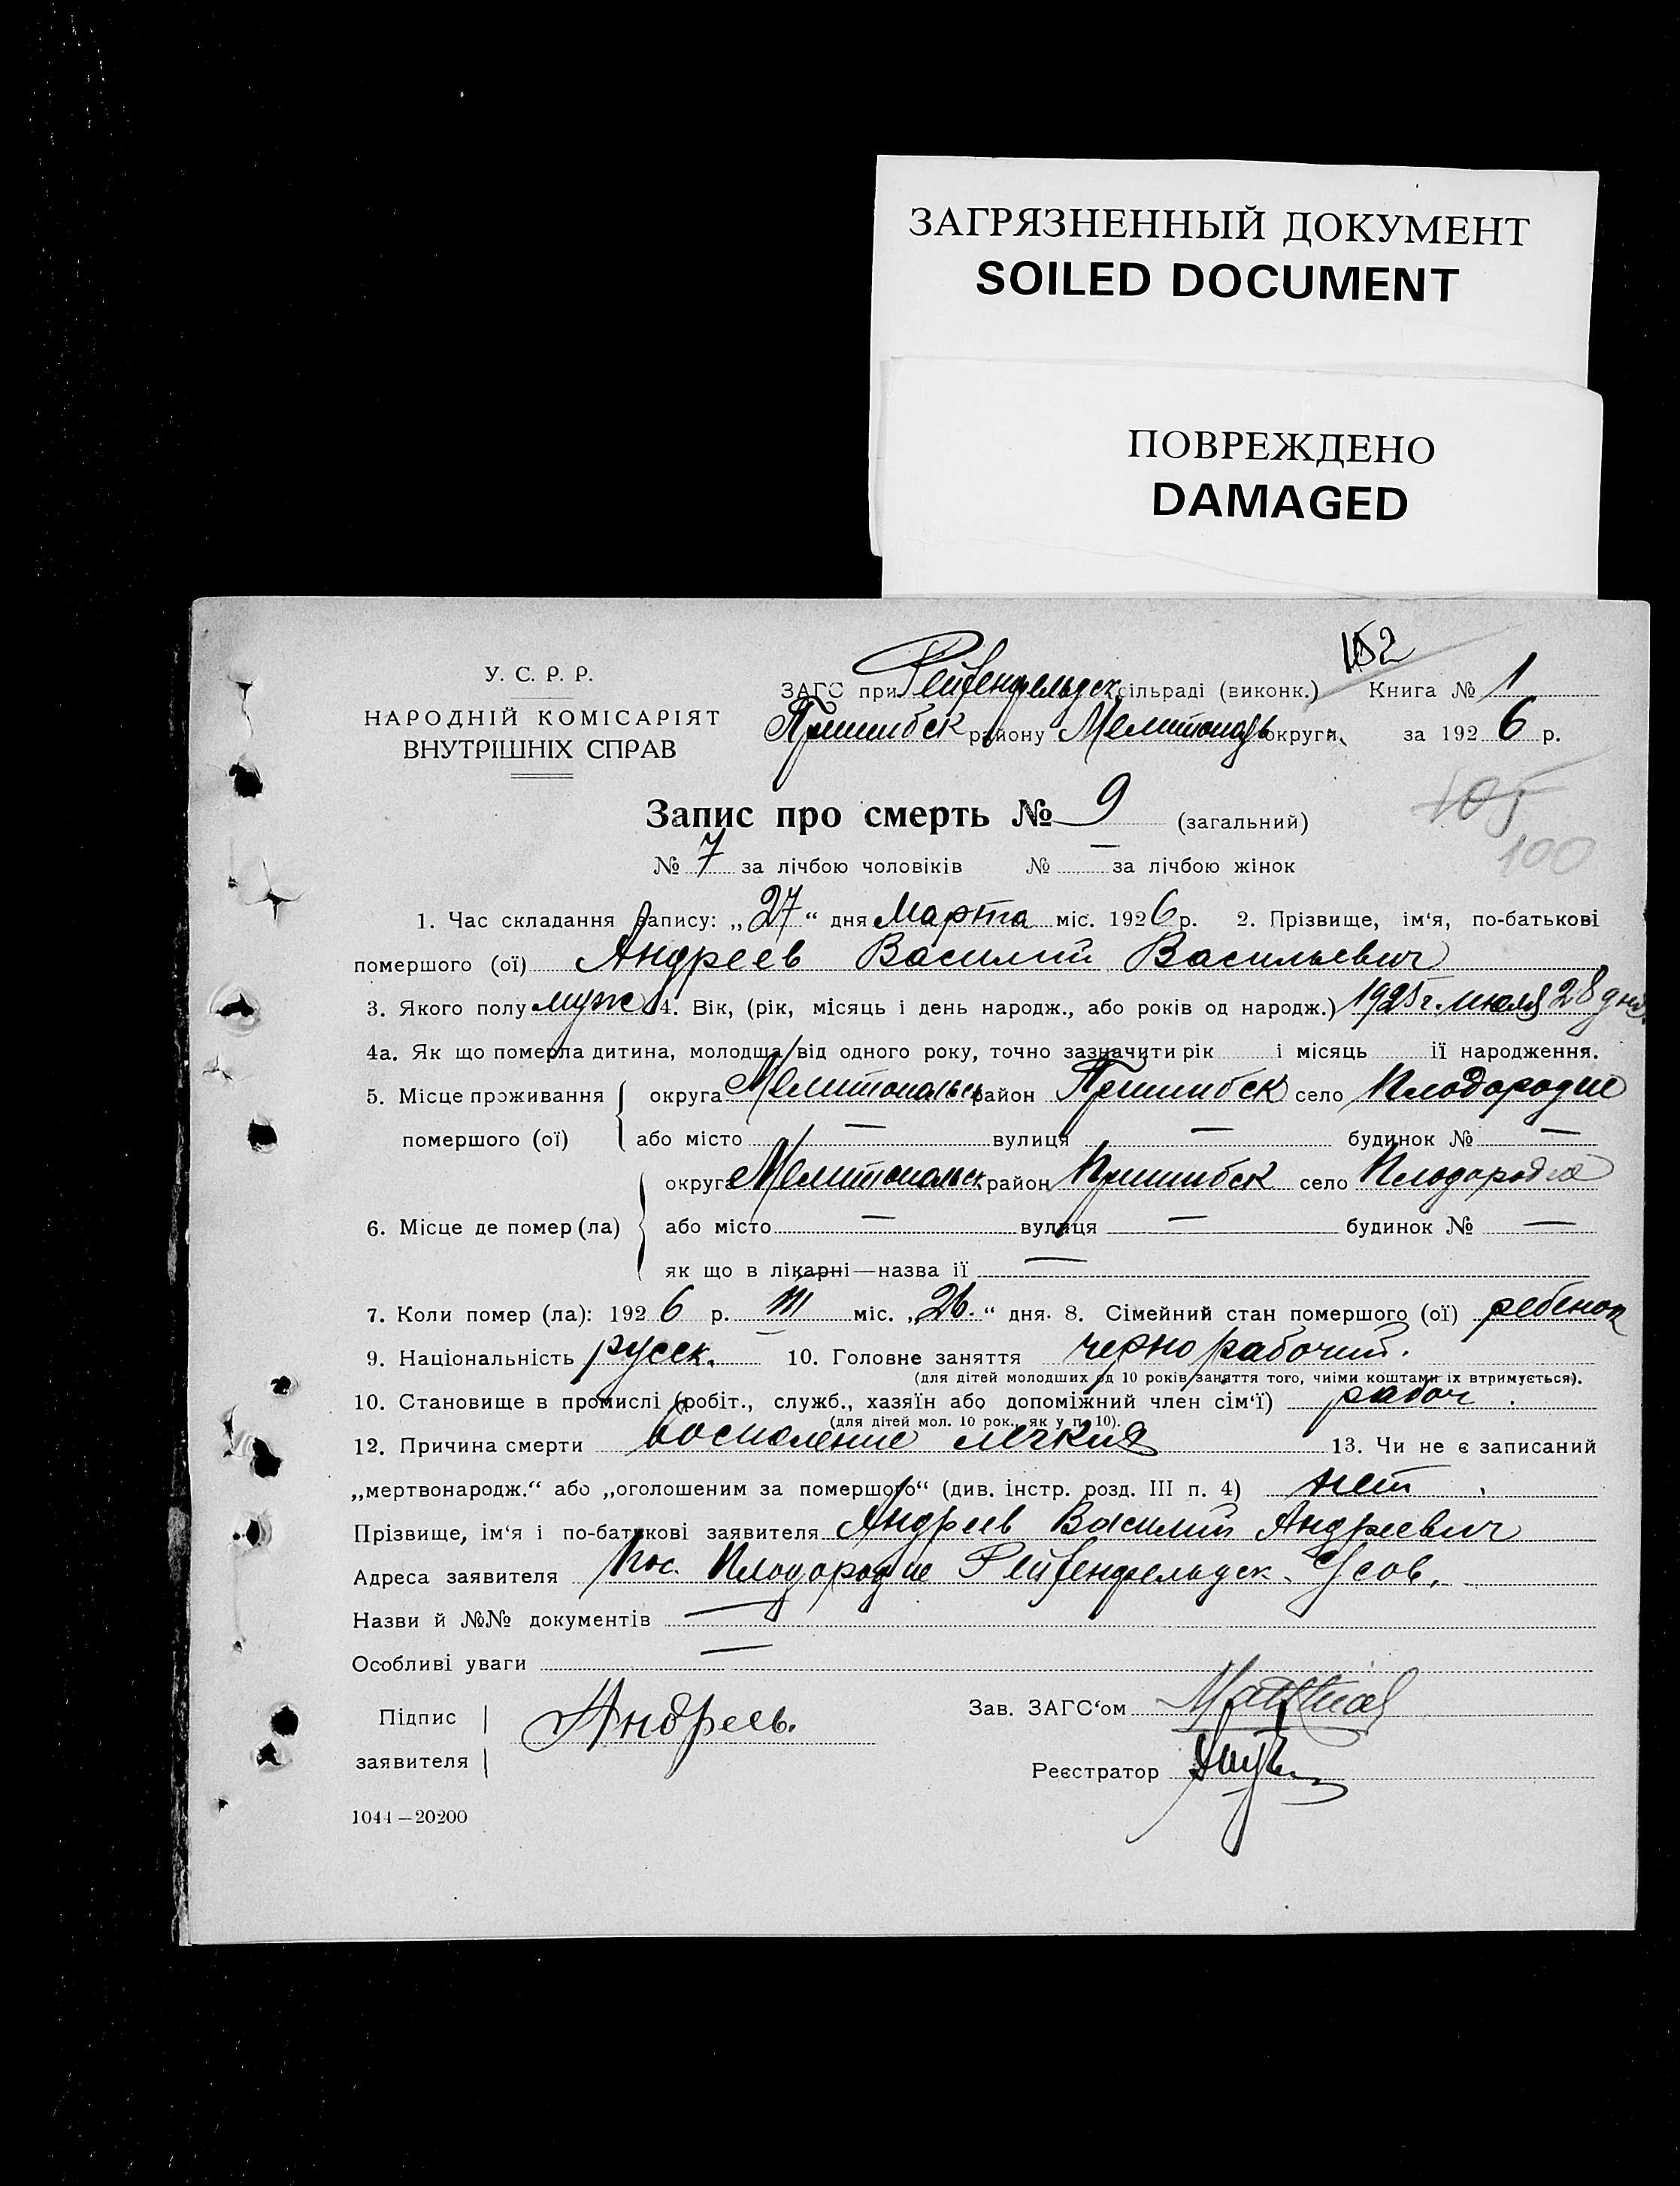 ЗАГРЯЗНЕННЫЙ ДОКУМЕНТ
SOILED DOCUMENT
ПОВРЕЖДЕНО
DAMAGED
152
У. С. Р. Р.
НАРОДНІЙ КОМІСАРІЯТ
ВНУТРІШНІХ СПРАВ
ЗАГС при Рейхенфельдск сільраді (виконк.) Книга № 1
Пришибск району Мелитополь округи, за 1926 р.
Запис про смерть № 9 (загальний)
105
100
№ 7 за лічбою чоловіків № — за лічбою жінок
1. Час складання запису: „27“ дня Марта міс. 1926 р. 2. Прізвище, ім'я, по-батькові
помершого (ої) Андреев Василий Васильевич
3. Якого полу муж 4. Вік, (рік, місяць і день народж., або років од народж.) 1925 г. июля 28 дня
4а. Як що померла дитина, молодща від одного року, точно зазначити рік і місяць її народження.
5. Місце проживання округа Мелитопольск район Пришибск село Плодородие
помершого (ої) або місто — вулиця — будинок № —
округа Мелитопольск район Пришибск село Плодородие
6. Місце де помер (ла) або місто — вулиця — будинок № —
як що в лікарні—назва її —
7. Коли помер (ла): 1926 р. III міс. „26.“ дня. 8. Сімейний стан помершого (ої) ребенок
9. Національність русск. — 10. Головне заняття чернорабочий.
(для дітей молодших од 10 років заняття того, чиїми коштами їх втримується).
10. Становище в промислі (робіт., служб., хазяїн або допоміжний член сім'ї) рабоч.
(для дітей мол. 10 рок., як у п. 10).
12. Причина смерти воспаление легкия 13. Чи не є записаний
„мертвонародж.“ або „оголошеним за помершого“ (див. інстр. розд. III п. 4) нет
Прізвище, ім'я і по-батькові заявителя Андреев Василий Андреевич
Адреса заявителя пос. Плодородие Рейхенфельдск. С/сов.
Назви й №№ документів —
Особливі уваги —
Підпис Андреев. Зав. ЗАГС'ом Matthies
заявителя Реєстратор
1044—20200